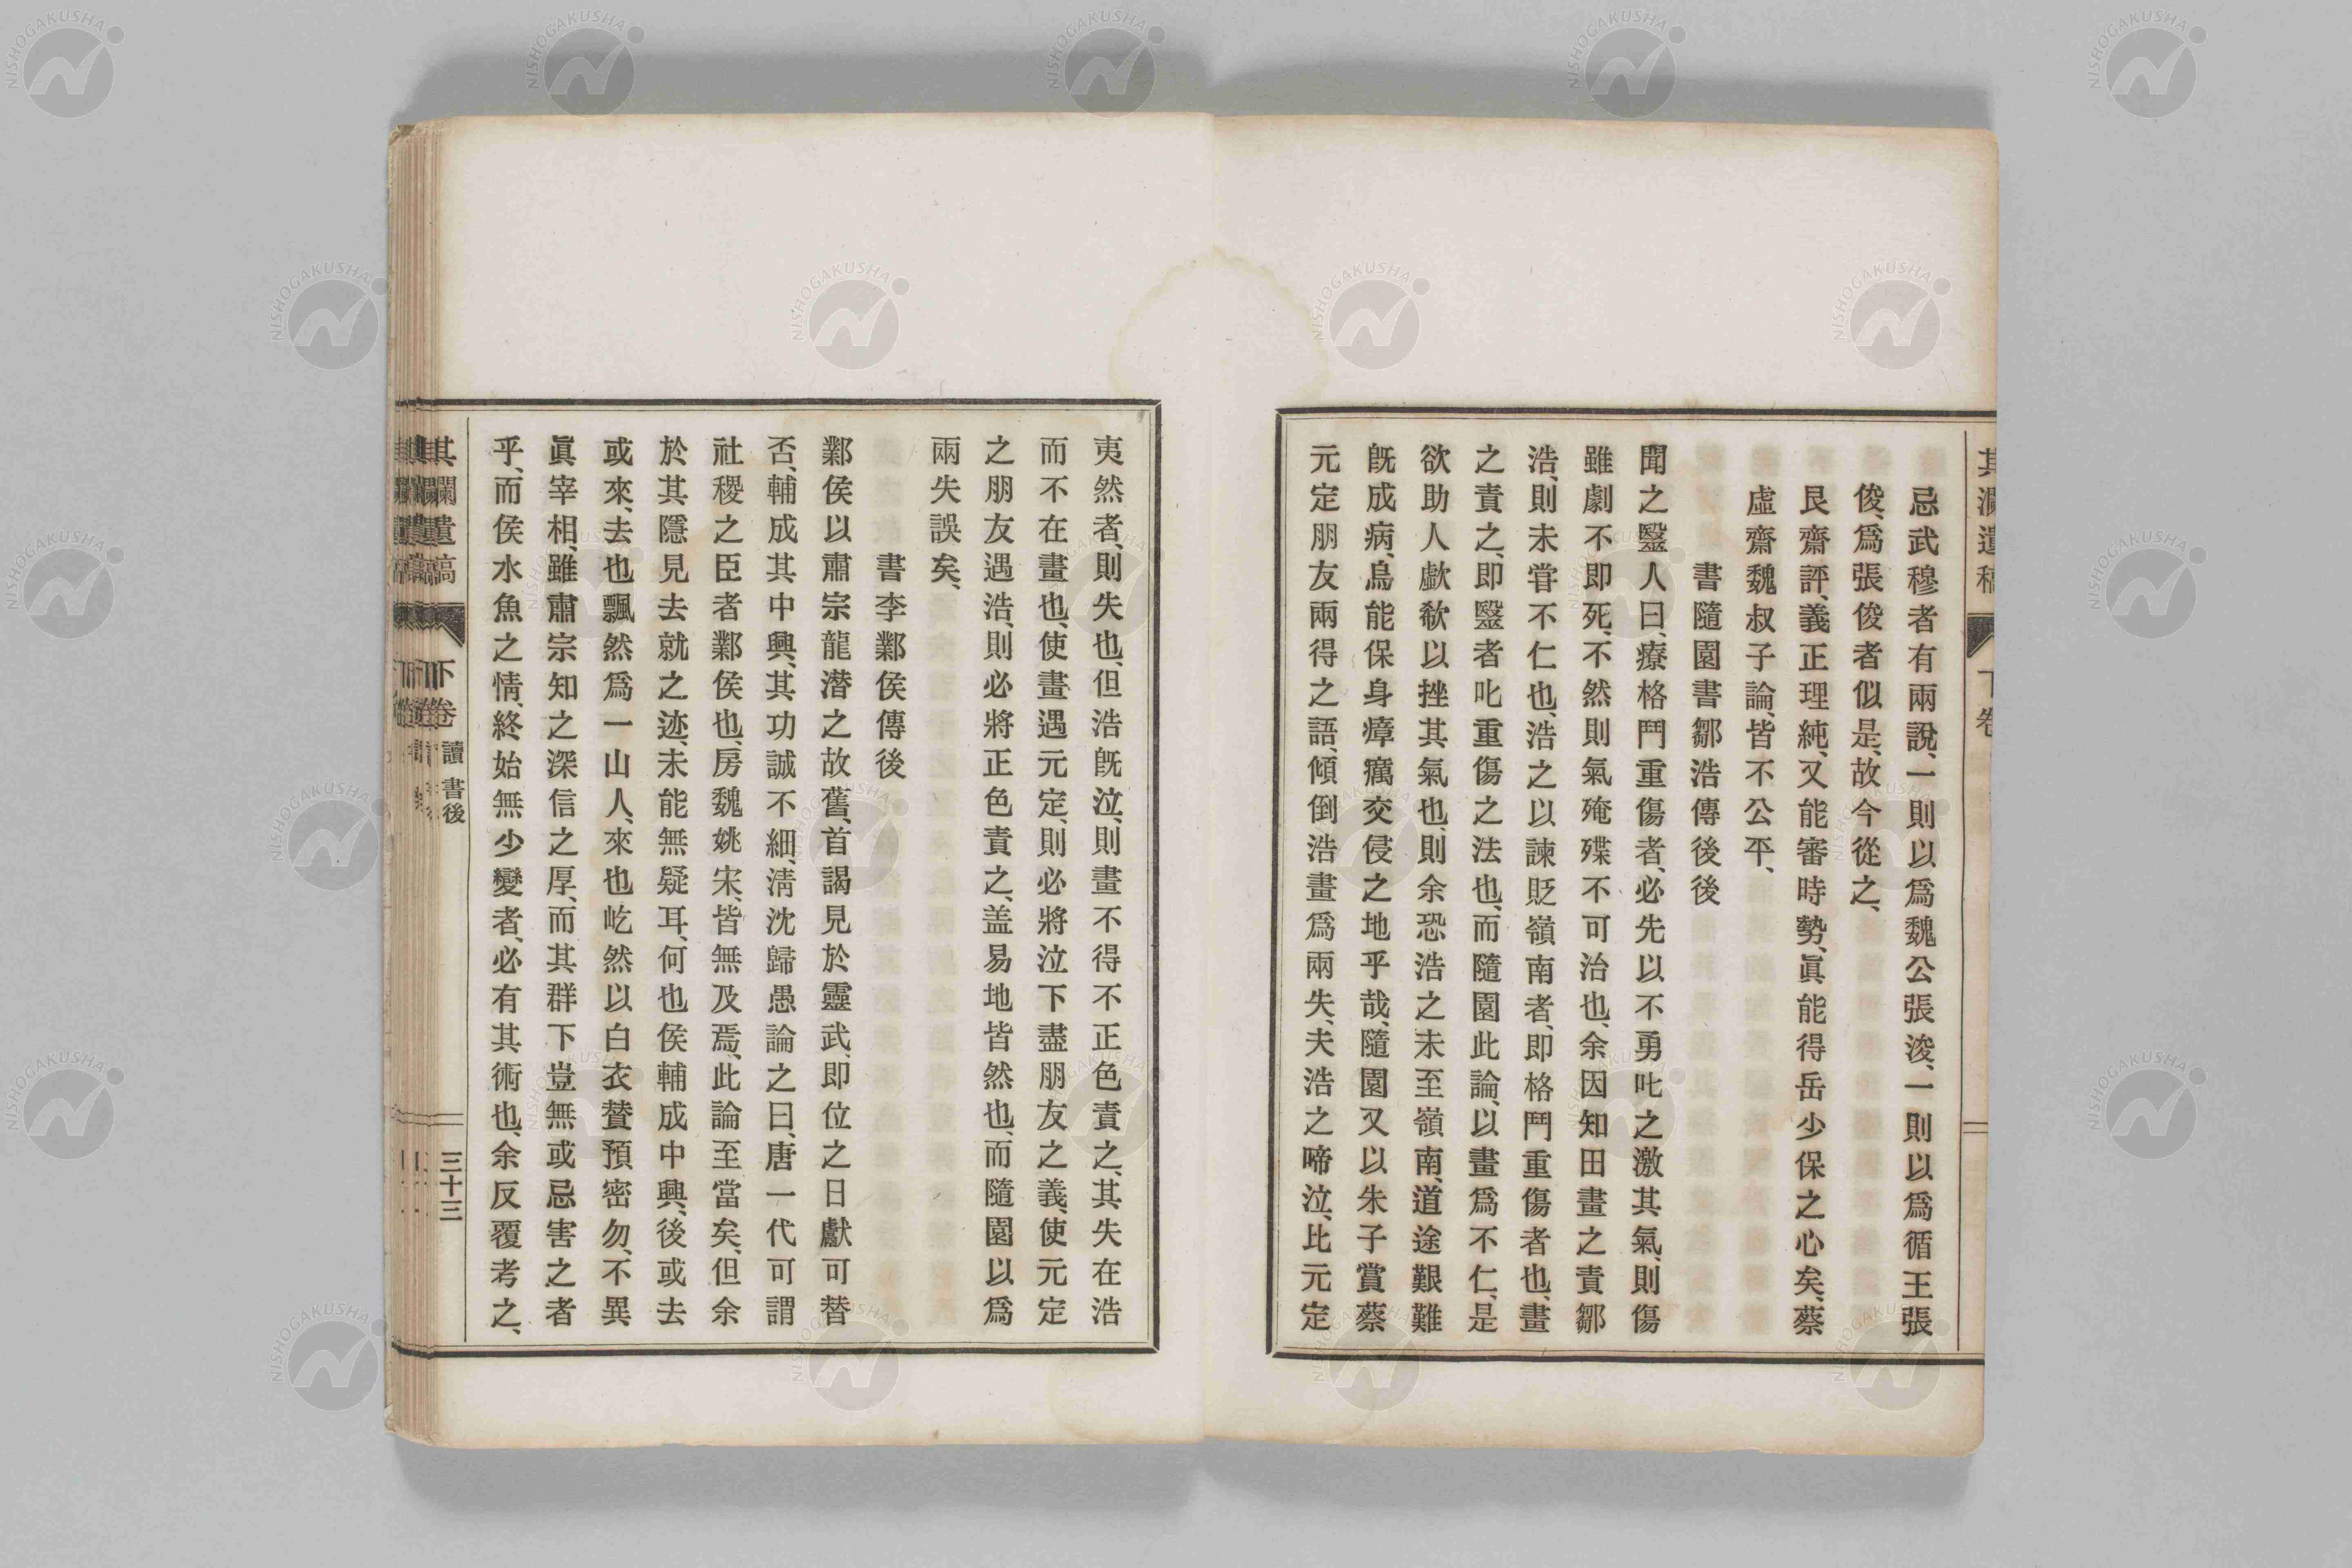 忌武穆者有兩說、一則以爲魏公張浚、一則以爲循王張
俊、爲張俊者似是、故今從之、
艮齋評、義正理純、又能審時勢、眞能得岳少保之心矣、蔡
虛齋魏叔子論、皆不公平、
書隨園書鄒浩傳後後
聞之毉人曰、療格鬥重傷者、必先以不勇叱之激其氣、則傷
雖劇不即死、不然則氣殗殜不可治也、余因知田畫之責鄒
浩、則未甞不仁也、浩之以諫貶嶺南者、即格鬥重傷者也、畫
之責之、即毉者叱重傷之法也、而隨園此論、以畫爲不仁、是
欲助人歔欷以挫其氣也、則余恐浩之未至嶺南、道途艱難
旣成病、烏能保身瘴癘交侵之地乎哉、隨園又以朱子賞蔡
元定朋友兩得之語、傾倒浩畫爲兩失、夫浩之啼泣、比元定
夷然者、則失也、但浩旣泣、則畫不得不正色責之、其失在浩
而不在畫也、使畫遇元定、則必將泣下盡朋友之義、使元定
之朋友遇浩、則必將正色責之、盖易地皆然也、而隨園以爲
兩失誤矣、
書李鄴侯傳後
鄴侯以肅宗龍潛之故舊、首謁見於靈武、即位之日獻可替
否、輔成其中興、其功誠不細、淸沈歸愚論之曰、唐一代可謂
社稷之臣者鄴侯也、房魏姚宋、皆無及焉、此論至當矣、但余
於其隱見去就之迹、未能無疑耳、何也侯輔成中興、後或去
或來、去也飄然爲一山人、來也屹然以白衣贊預密勿、不異
眞宰相、雖肅宗知之深信之厚、而其群下豈無或忌害之者
乎、而侯水魚之情、終始無少變者、必有其術也、余反覆考之、
其瀾遺稿
下卷
讀書後
三十三